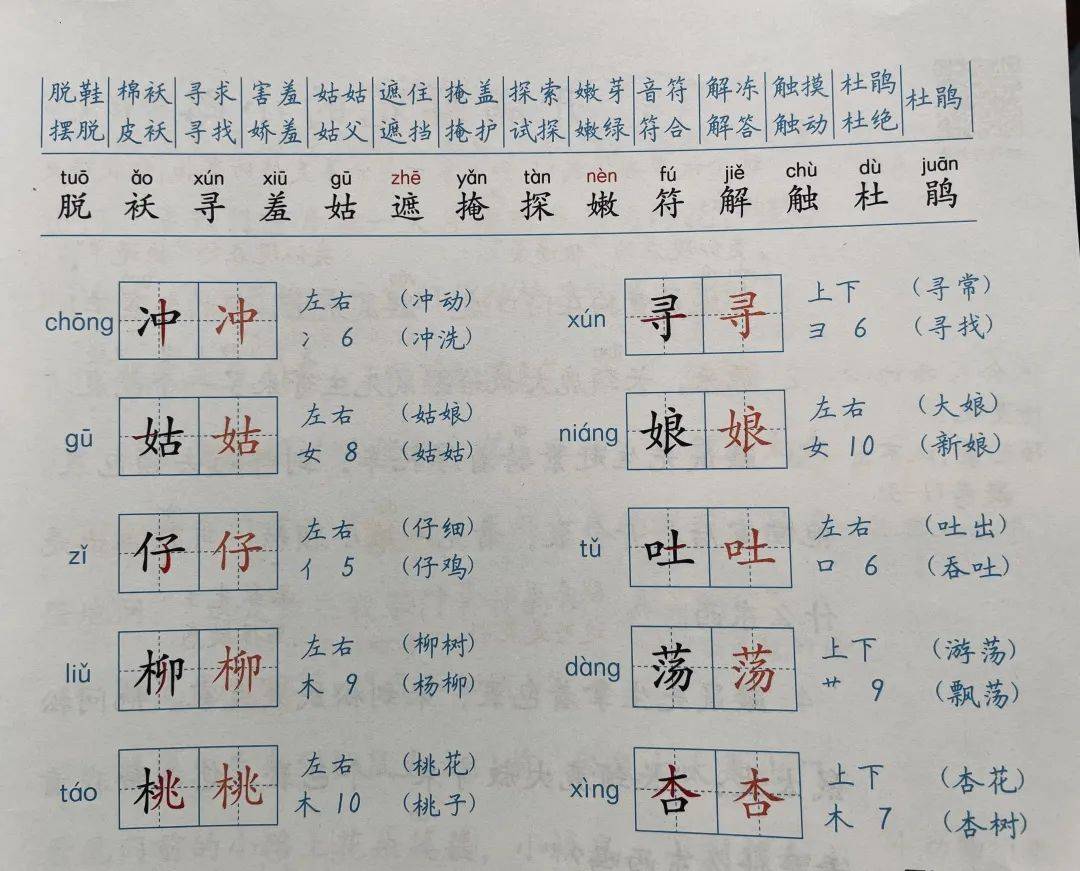 脱鞋 棉袄 寻求 害羞 姑姑 遮住 掩盖 探索 嫩芽 音符 解冻 触摸 杜鹃 杜鹃
摆脱 皮袄 寻找 娇羞 姑父 遮挡 掩护 试探 嫩绿 符合 解答 触动 杜绝
tuō ǎo xún xiū gū zhē yǎn tàn nèn fú jiě chù dù juān
脱 袄 寻 羞 姑 遮 掩 探 嫩 符 解 触 杜 鹃
chōng 冲 冲 左右 (冲动)
冫 6 (冲洗)
xún 寻 寻 上下 (寻常)
彐 6 (寻找)
gū 姑 姑 左右 (姑娘)
女 8 (姑姑)
niáng 娘 娘 左右 (大娘)
女 10 (新娘)
zǐ 仔 仔 左右 (仔细)
亻 5 (仔鸡)
tǔ 吐 吐 左右 (吐出)
口 6 (吞吐)
liǔ 柳 柳 左右 (柳树)
木 9 (杨柳)
dàng 荡 荡 上下 (游荡)
艹 9 (飘荡)
táo 桃 桃 左右 (桃花)
木 10 (桃子)
xìng 杏 杏 上下 (杏花)
木 7 (杏树)